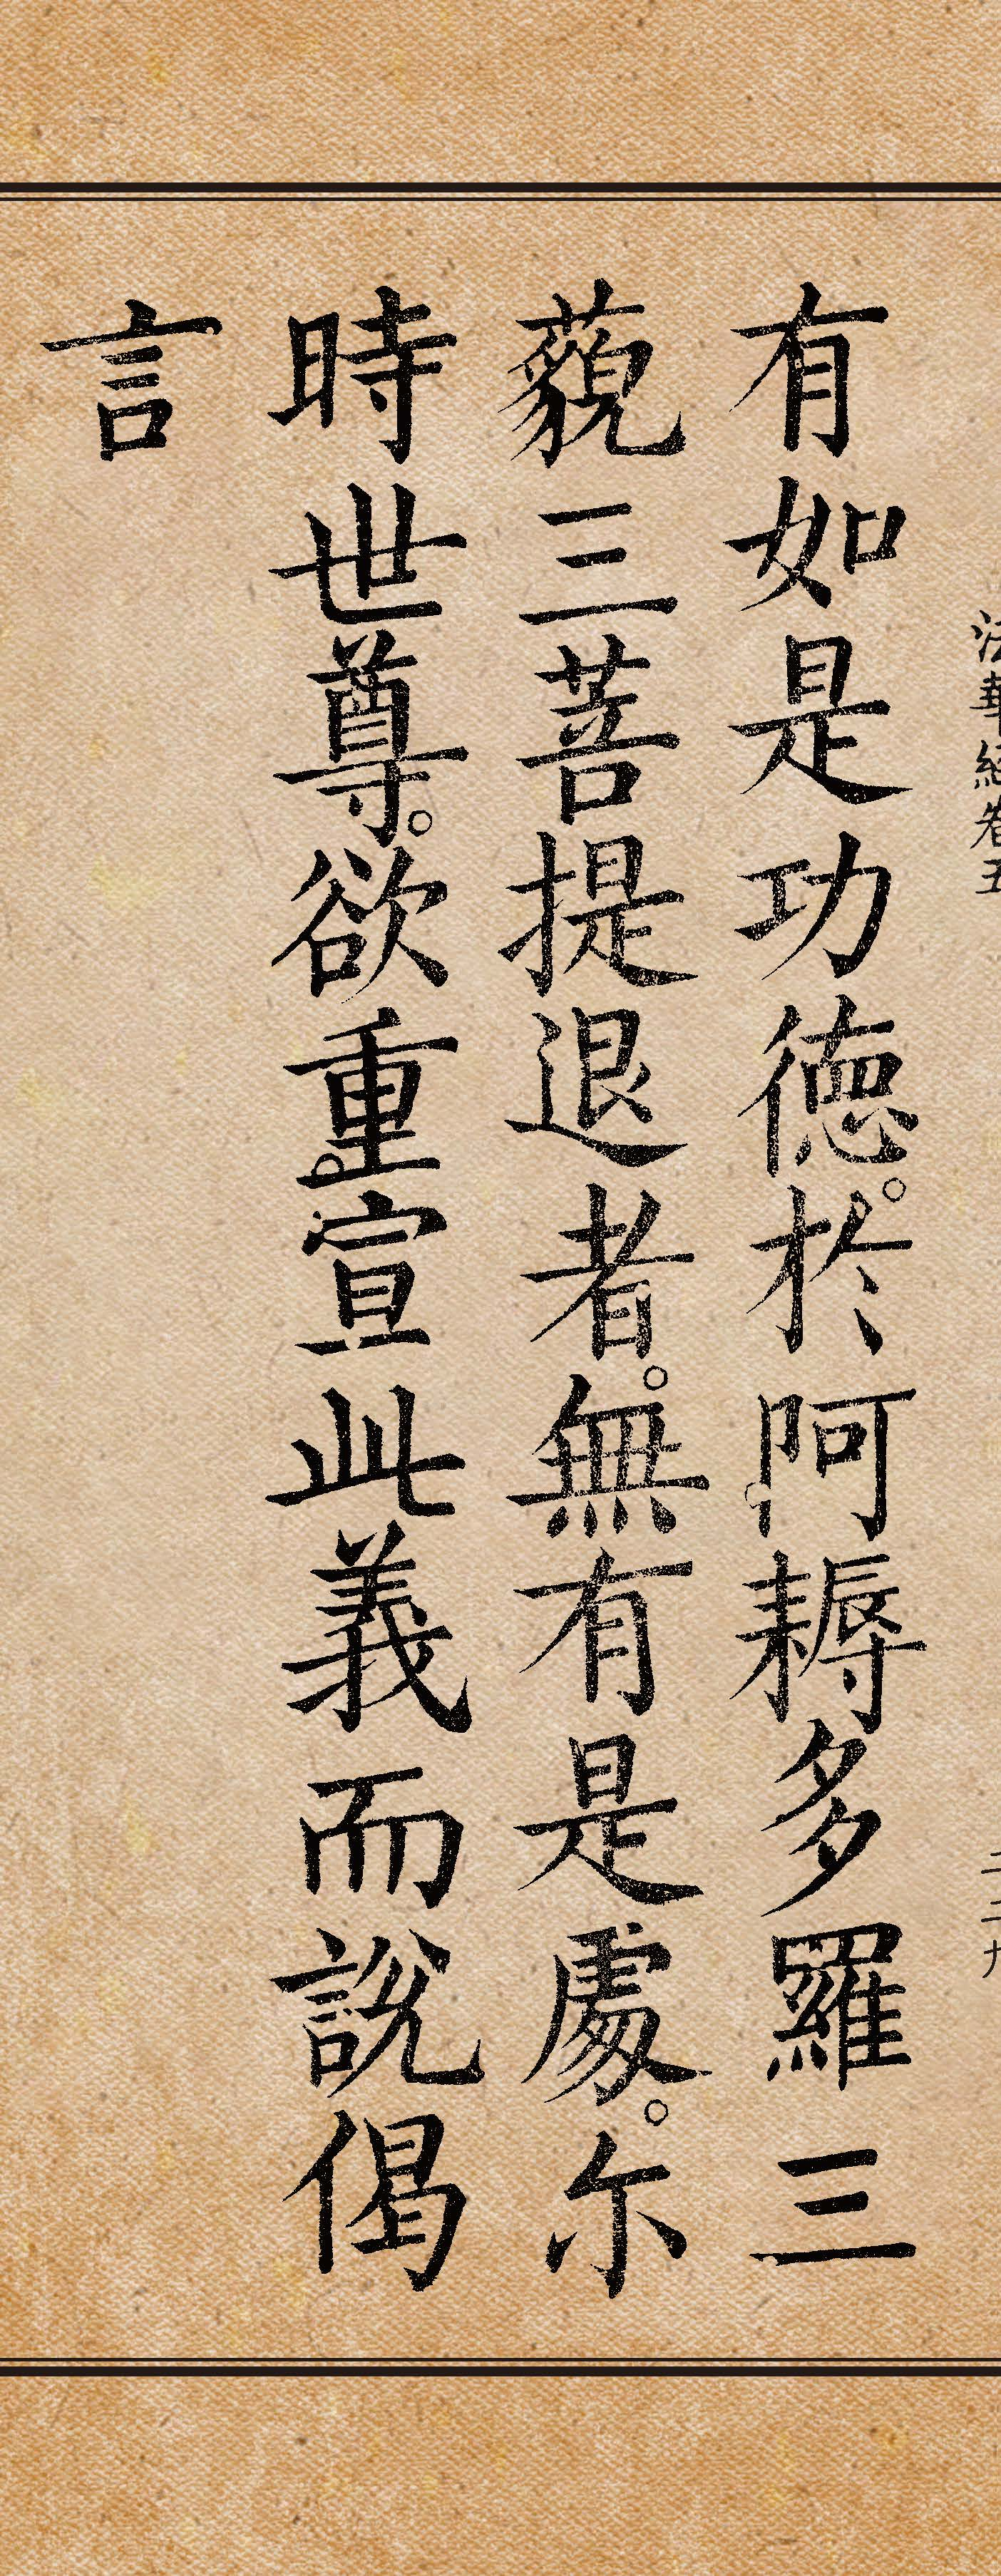 法華經卷五
有如是功德。於阿耨多羅三
藐三菩提退者。無有是處。尔
時世尊。欲重宣此義而說偈
言